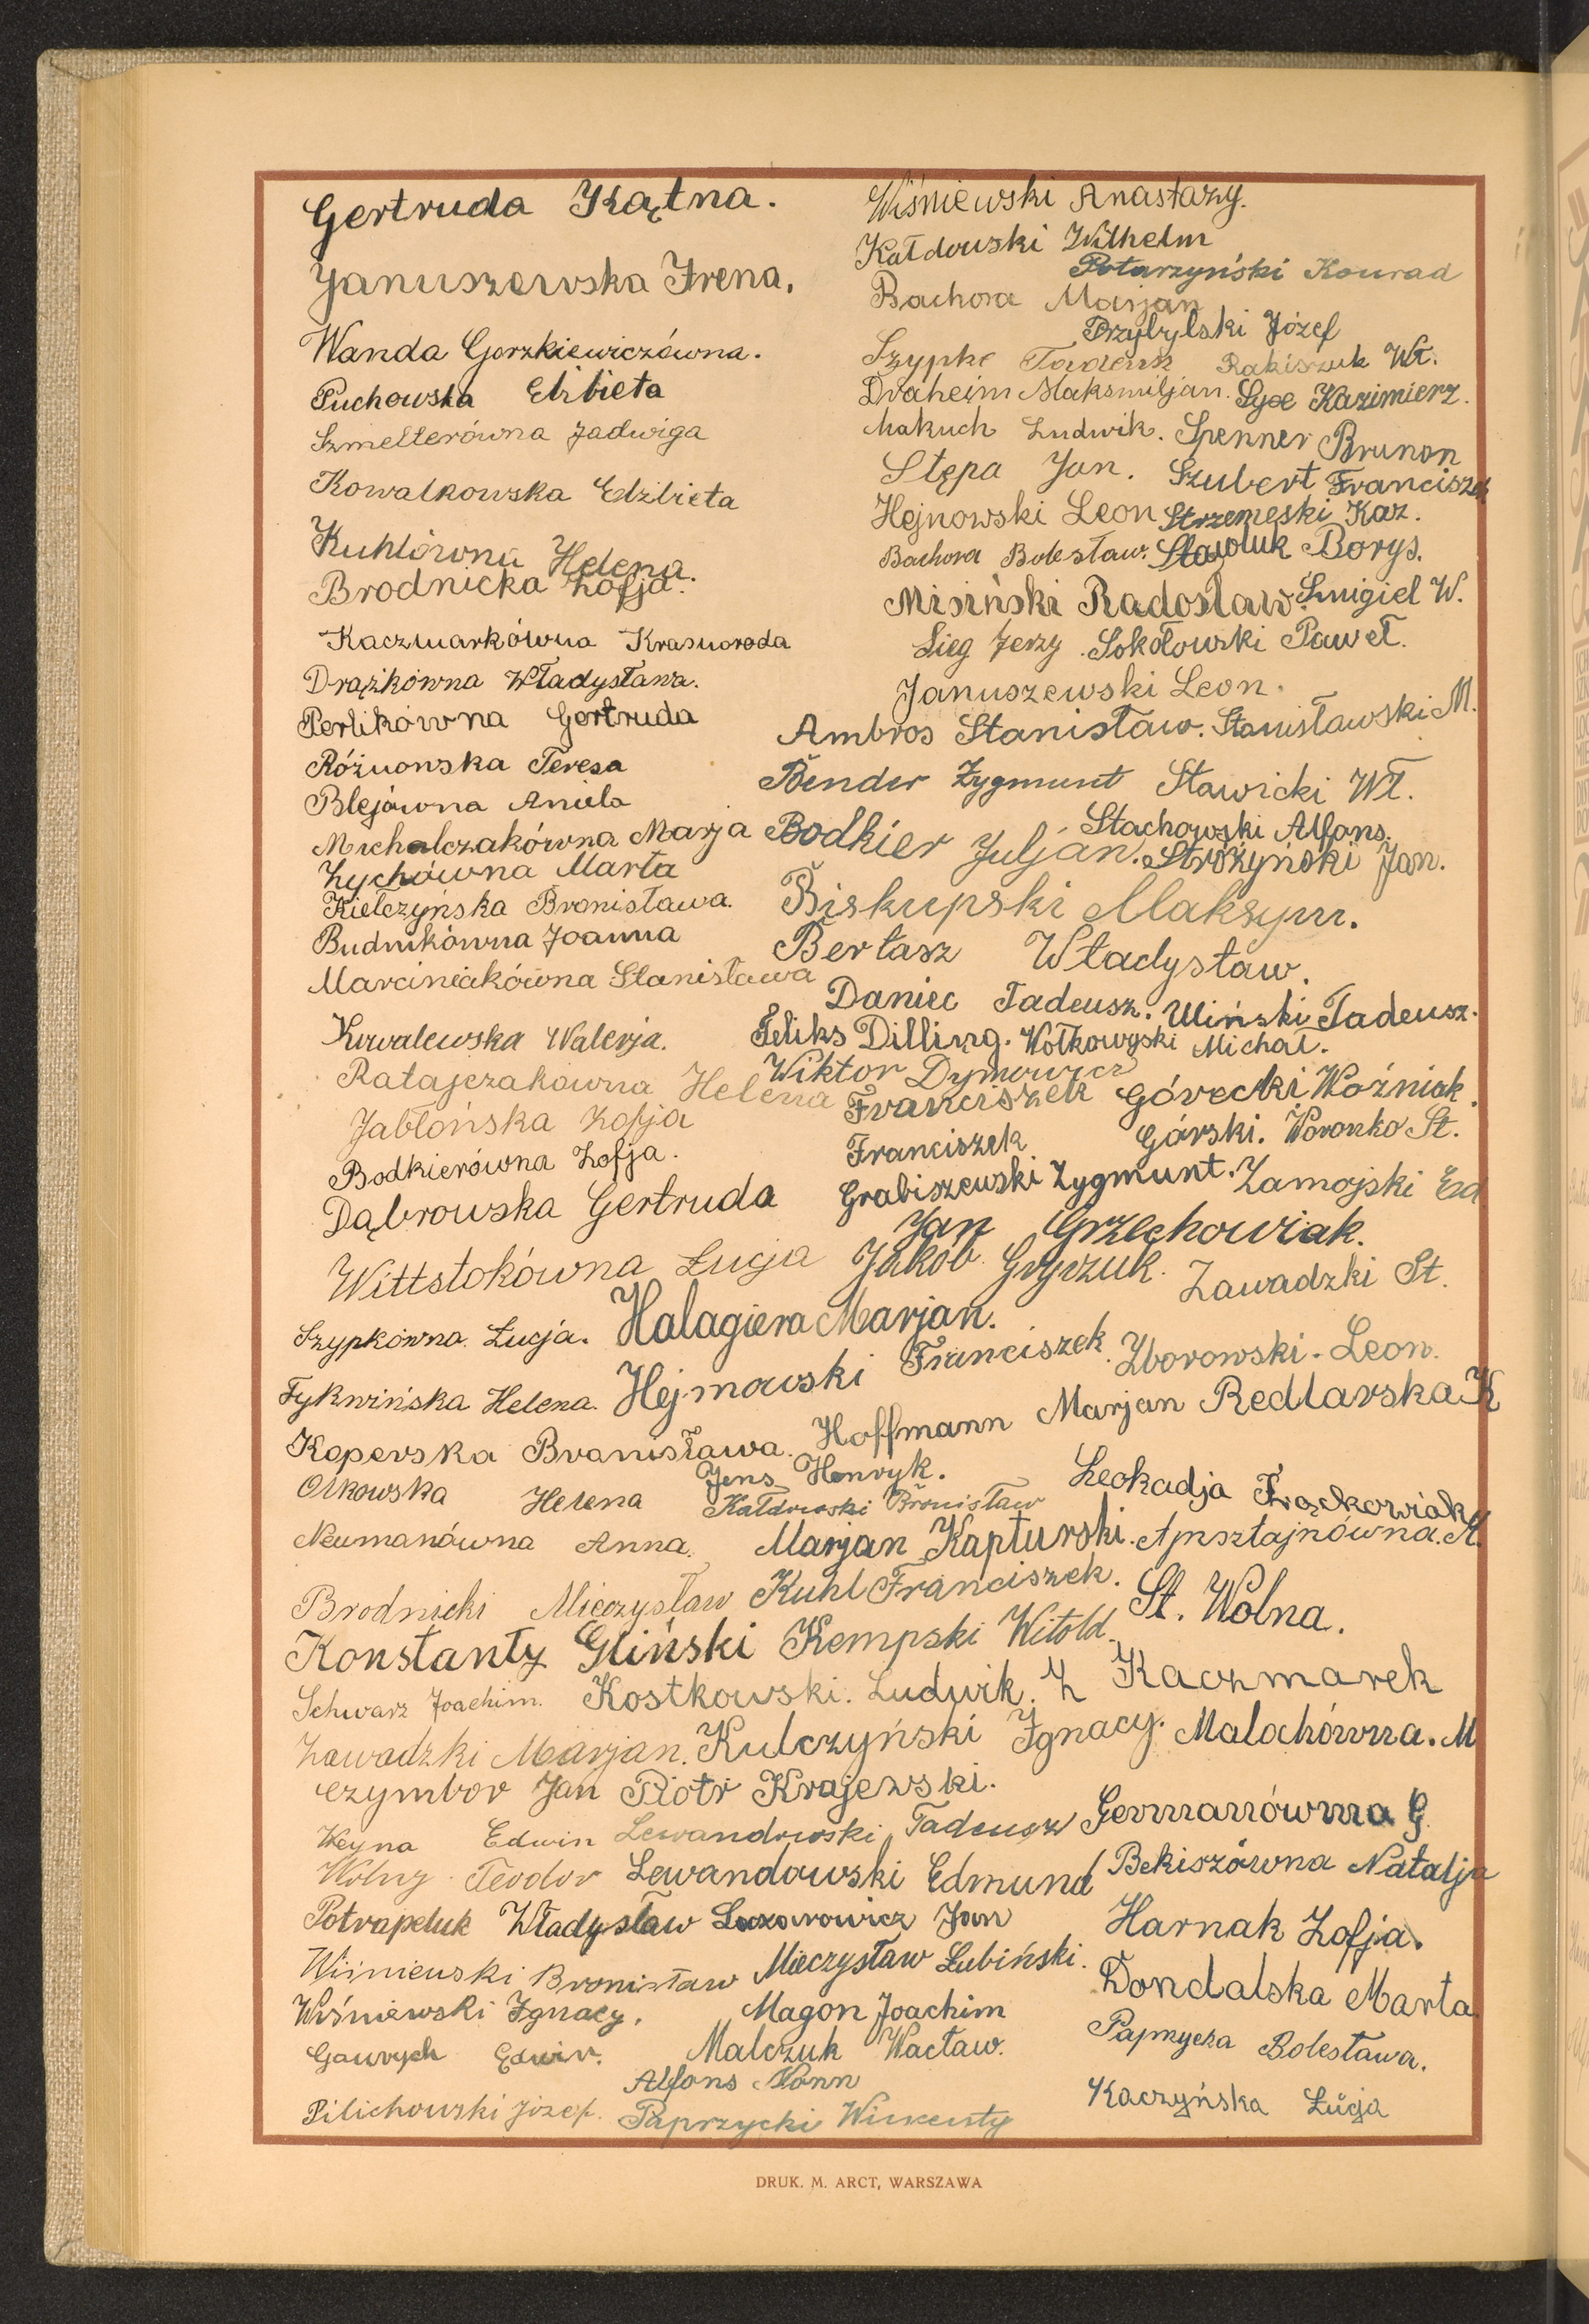 Gertruda Kątna.
Januszewska Irena.
Wanda Gorzkiewiczówna.
Puchowska Elżbieta
Szmelterówna Jadwiga
Kowalkowska Elżbieta
Kuhlówna Helena.
Brodnicka Zofja.
Kaczmarkówna Krasnoroda
Drążkówna Władysława.
Perlikówna Gertruda
Różnowska Teresa
Blejówna Aniela
Michalczakówna Marja
Zychówna Marta
Kiełczyńska Bronisława.
Budnikówna Joanna
Marciniakówna Stanisława
Kowalewska Walerja.
Ratajczakówna Helena
Jabłońska Zofja
Bodkierówna Zofja.
Dąbrowska Gertruda
Wittstokówna Łucja
Szypkówna Łucja.
Tykwińska Helena.
Koperska Bronisława.
Olkowska Helena
Neumanówna Anna.
Brodnicki Mieczysław
Konstanty Gliński
Schwarz Joachim.
Zawadzki Marjan.
Czymbor Jan
Keyna Edwin
Wolny Teodor
Potrapeluk Władysław
Wiśniewski Bronisław
Wiśniewski Ignacy.
Gawrych Edwin.
Pilichowski Józef.
Wiśniewski Anastazy.
Kałdowski Wilhelm
Potarzyński Konrad
Bachora Marjan
Przybylski Józef
Szypke Tadeusz Rakiszuk Wł.
Draheim Maksmiljan. Syse Kazimierz.
Makuch Ludwik. Spenner Brunon
Stępa Jan. Szubert Franciszek
Hejnowski Leon Strzemeski Kaz.
Bachora Bolesław. Stasoluk Borys.
Misiński Radosław. Śmigiel W.
Sieg Jerzy. Sokołowski Paweł.
Januszewski Leon.
Ambros Stanisław. Stanisławski M.
Bender Zygmunt Stawicki Wł.
Stachowski Alfons.
Bodkier Juljan. Stróżyński Jan.
Biskupski Maksym.
Bertasz Władysław.
Daniec Tadeusz. Uliński Tadeusz.
Feliks Dilling. Wołkowyski Michał.
Wiktor Dymowicz
Franciszek Górecki Woźniak.
Franciszek Górski. Woronko St.
Grabiszewski Zygmunt. Zamojski Ed
Jan Grzechowiak.
Jakób Gryczuk. Zawadzki St.
Halagiera Marjan.
Hejmowski Franciszek. Zborowski Leon.
Hoffmann Marjan Redlarska K
Jens Henryk. Leokadja Frąckowiak
Kałdowski Bronisław
Marjan Kapturski. Apsztajnówna. M.
Kuhl Franciszek. St. Wolna.
Kempski Witold.
Kostkowski. Ludwik. Z Kaczmarek
Kulczyński Ignacy. Malachówna. M
Piotr Krajewski.
Lewandowski Tadeusz Germanówna G.
Lewandowski Edmund Bekiszówna Natalja
Lazarowicz Jan Harnak Zofja.
Mieczysław Łubiński. Dondalska Marta
Magon Joachim
Malczuk Wacław. Papmycka Bolesława.
Alfons Nonn
Paprzycki Wincenty Kaczyńska Łucja
DRUK. M. ARCT, WARSZAWA